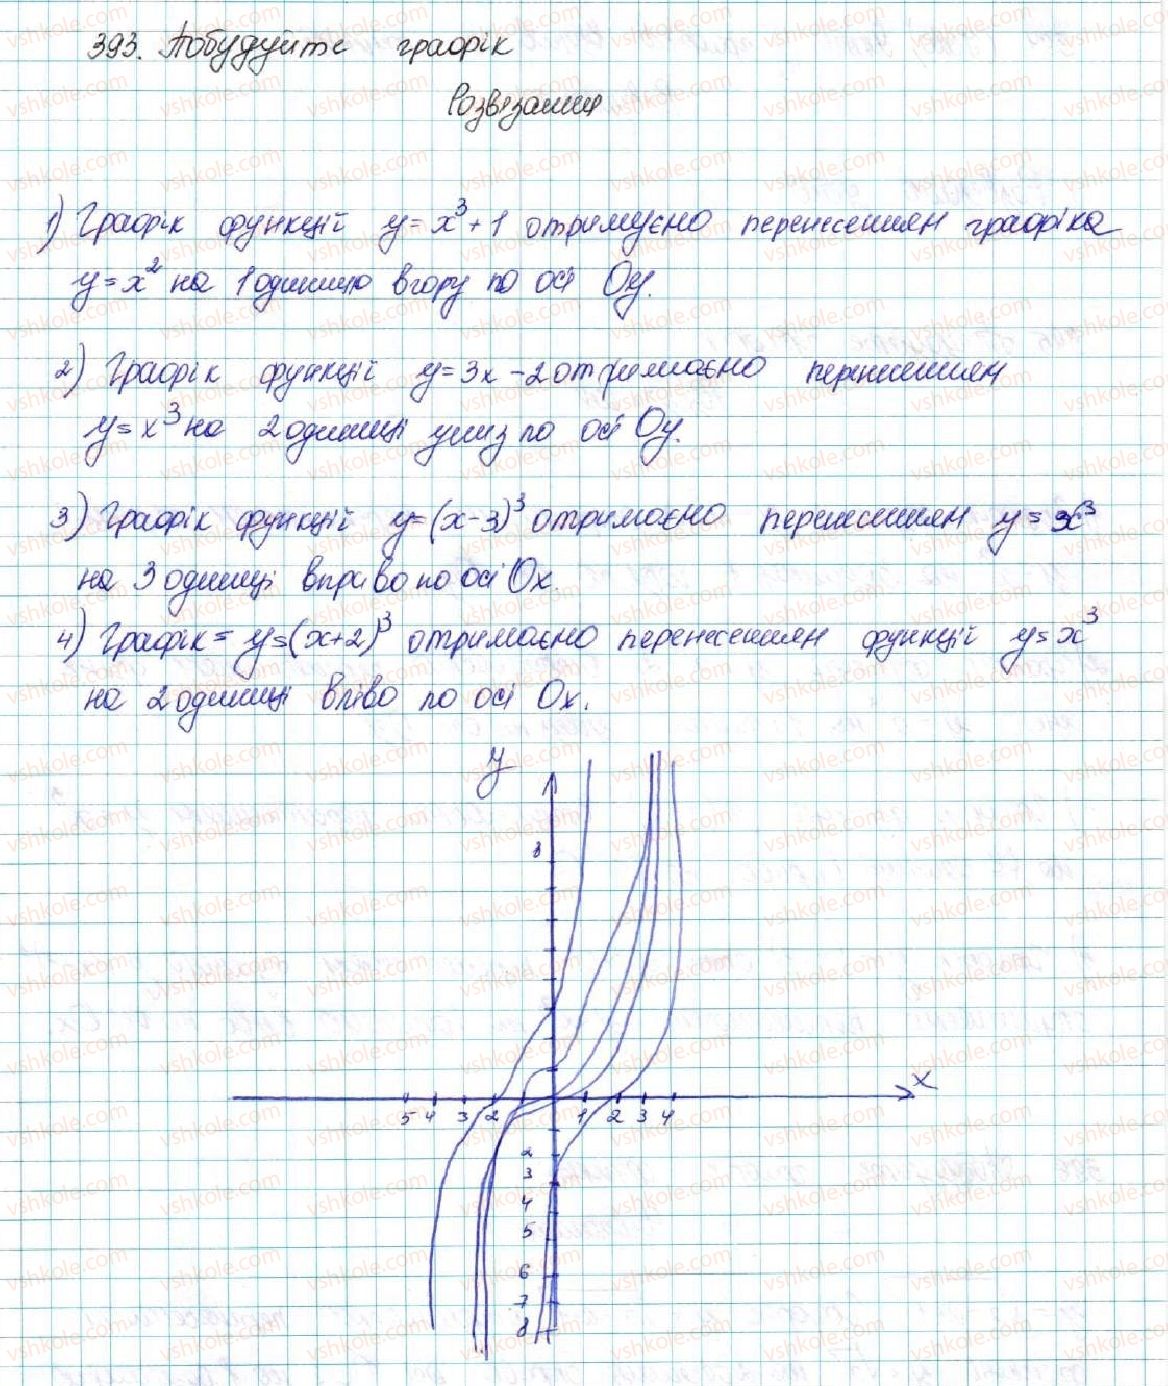 393. Побудуйте графік
Розв'язання
1) Графік функцій y = x³ + 1 отримуємо перенесенням графіка
y = x² на 1 одиницю вгору по осі Oy.
2) Графік функцій y = 3x - 2 отримаємо перенесенням
y = x³ на 2 одиниці униз по осі Oy.
3) Графік функцій y = (x - 3)³ отримаємо перенесенням y = x³
на 3 одиниці вправо по осі Ox.
4) Графік = y = (x + 2)³ отримаємо перенесенням функцій y = x³
на 2 одиниці вліво по осі Ox.
y
8
x
5 4 3 2 1 2 3 4
2
3
4
5
6
7
8
vshkole.com